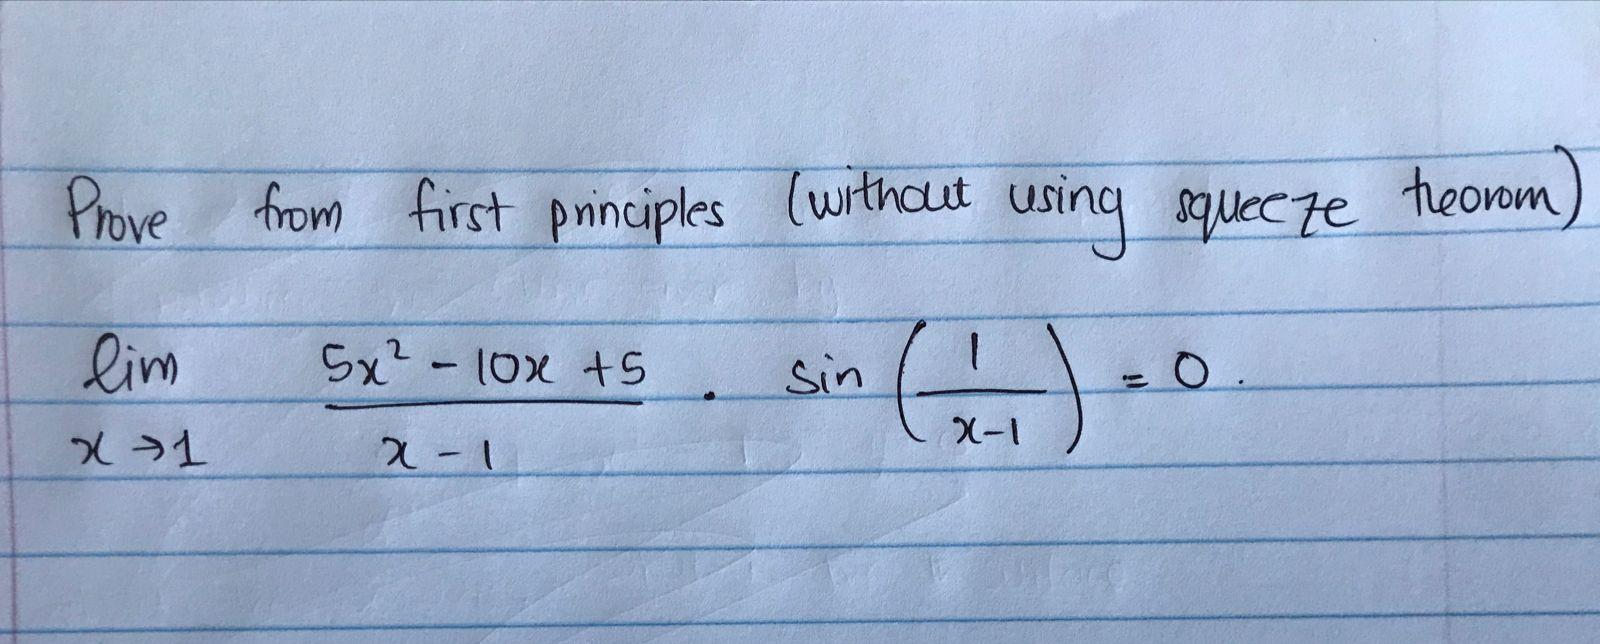 Prove from first principles (without using squeeze theorom)
lim x→1 (5x² - 10x + 5)/(x - 1) · sin (1/(x-1)) = 0.